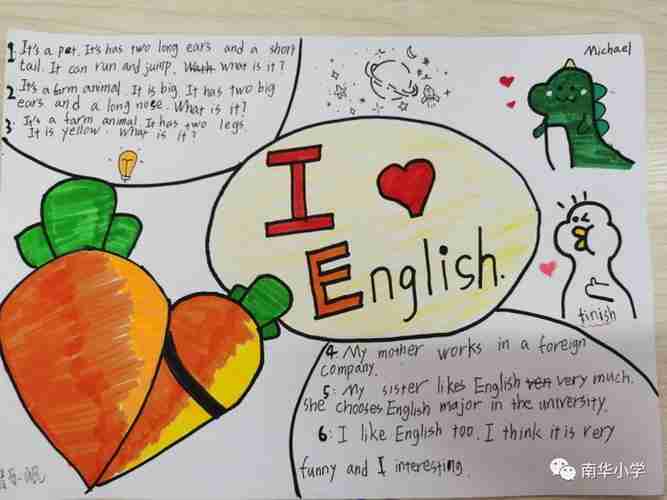 1. It's a pet. It's has two long ears and a short
tail. It can run and jump. what is it?
2 It's a farm animal. It is big. It has two big
ears and a long nose. What is it?
3. It's a farm animal. It has two legs.
It is yellow. What is it?
Michael
I ❤
English.
finish
4. My mother works in a foreign
company.
5: My sister likes English very much.
she chooses English major in the university.
6: I like English too. I think it is very
funny and I interesting.
南华小学